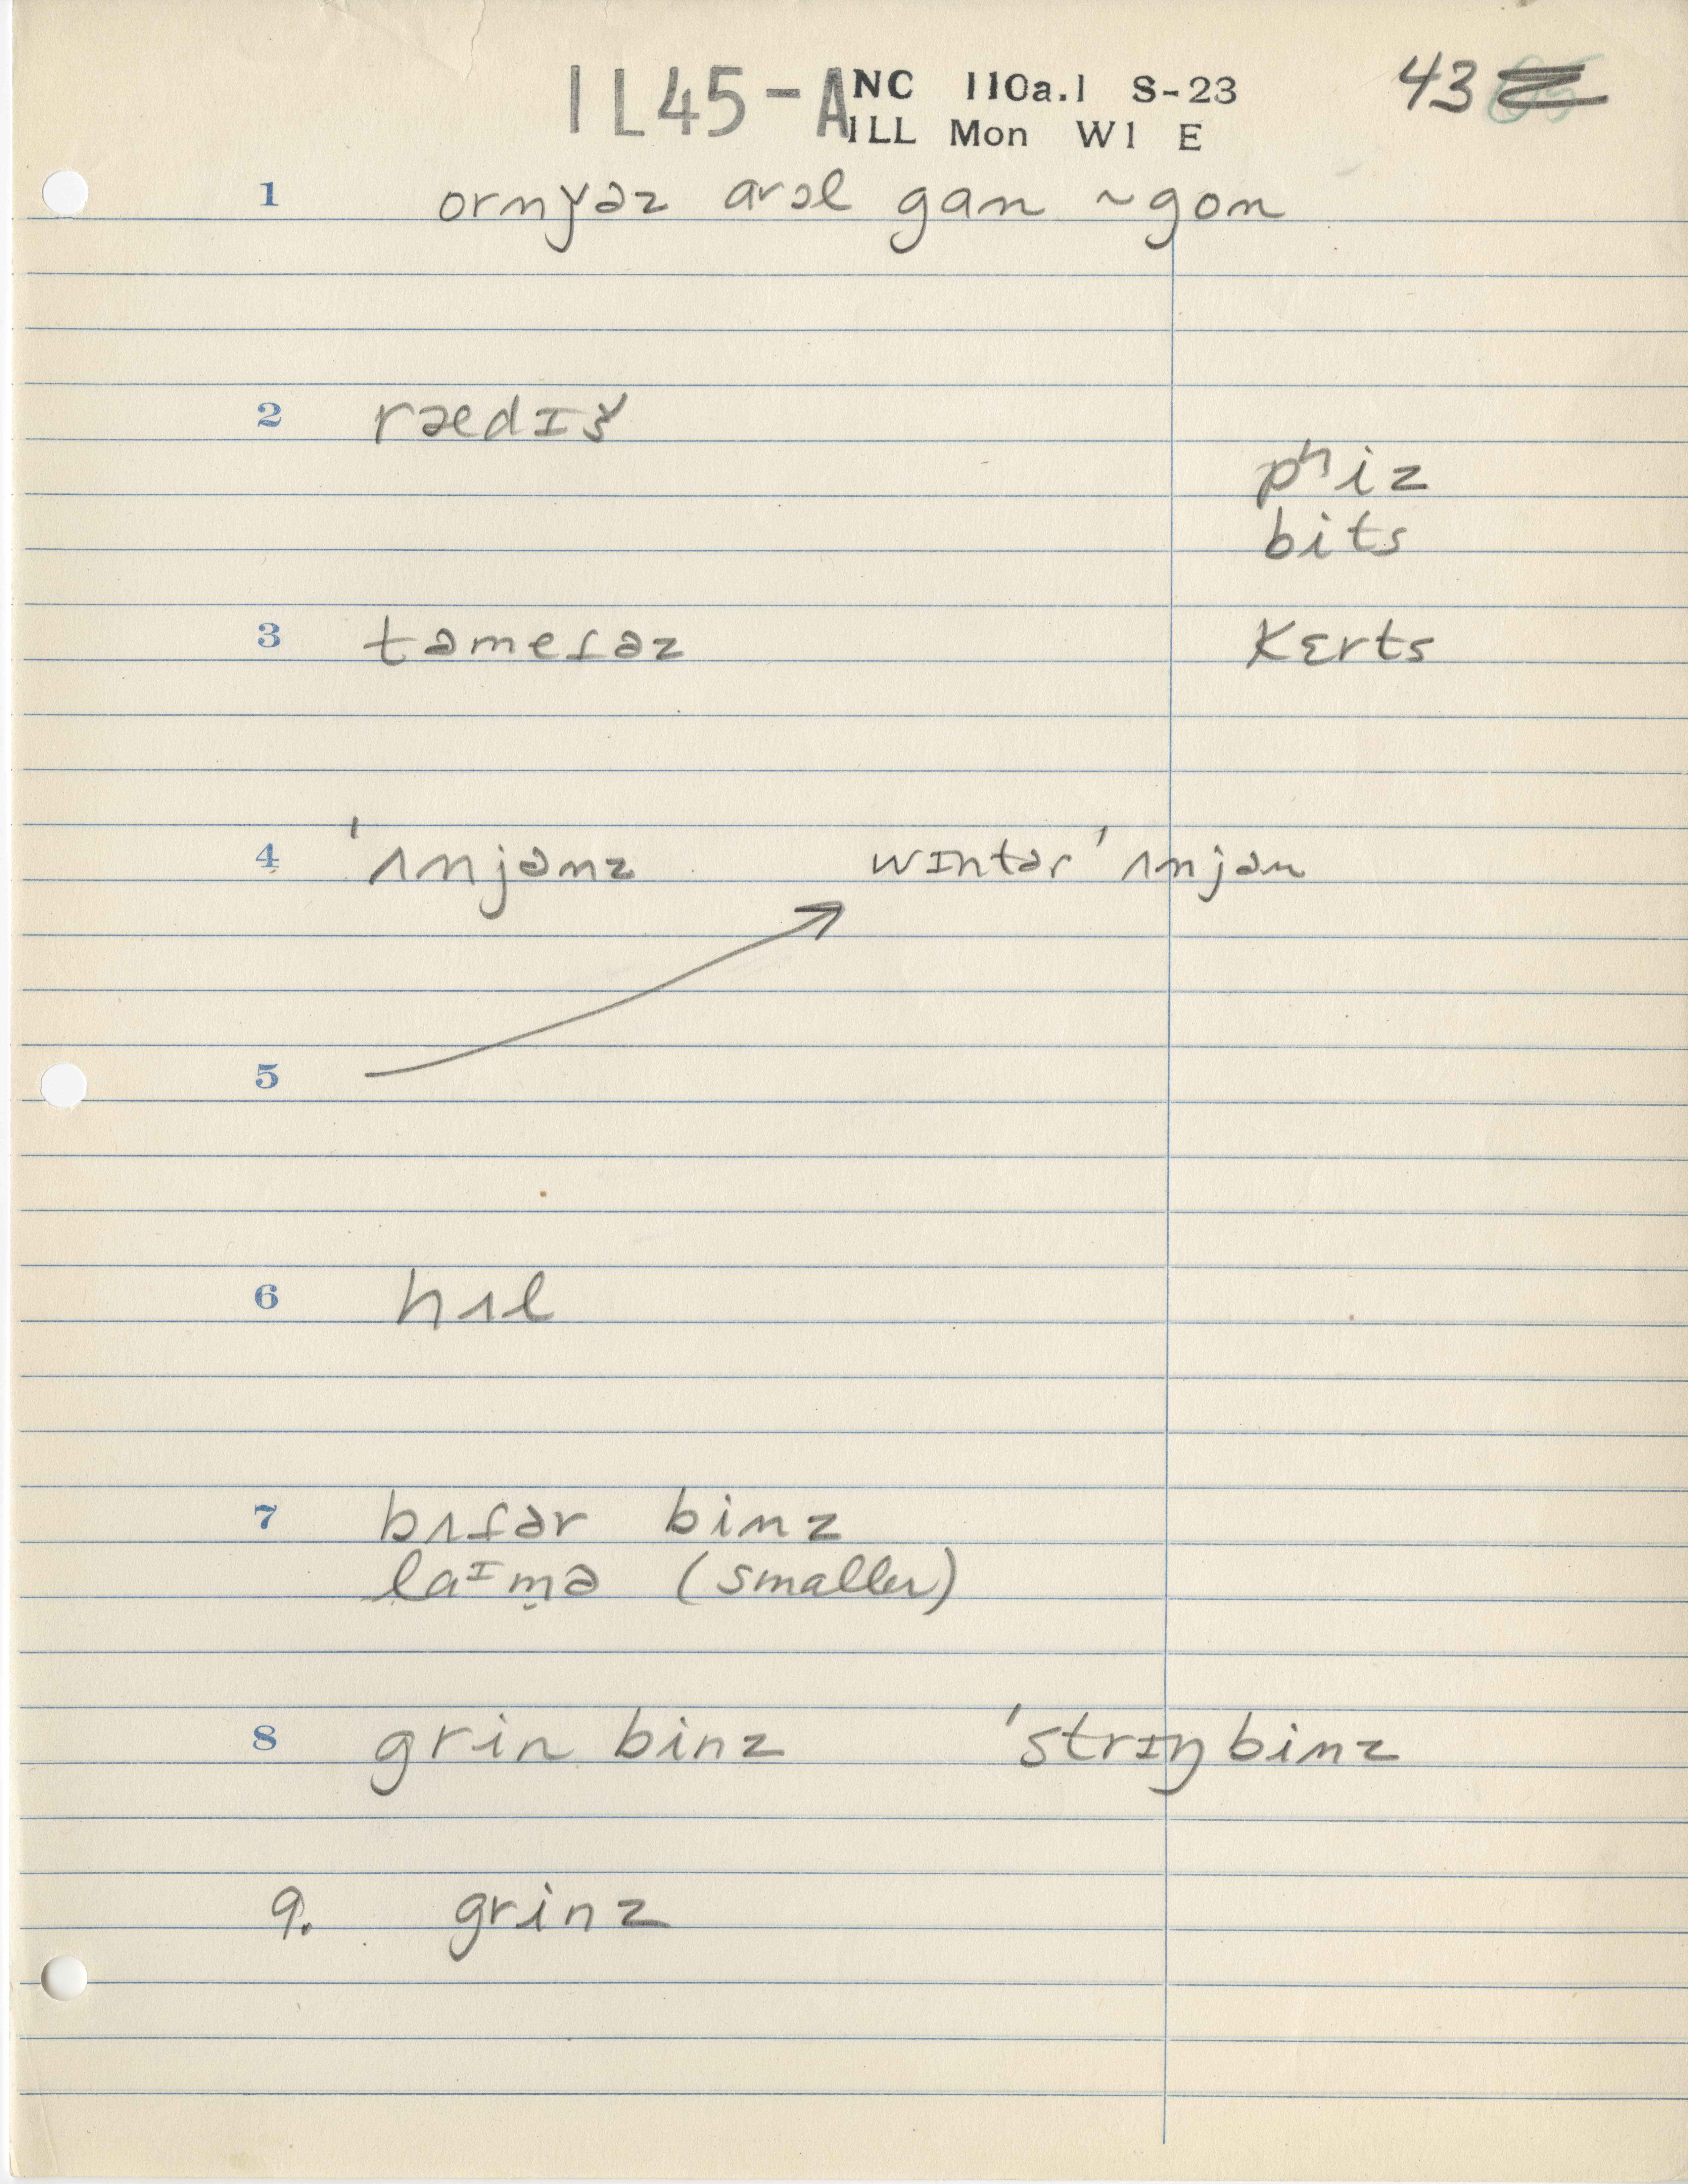 IL45-A NC 110a.1 S-23 43
ILL Mon W1 E
1 ornǰəz arəl gan ~ gon
2 rædɪš
pʰiz
bits
3 təmeɾəz kɛrts
4 'ʌnjənz wɪntər 'ʌnjən
5
6 hʌl
7 bʌɾər binz
laᶦmə (smaller)
8 grin binz 'strɪŋ binz
9. grinz